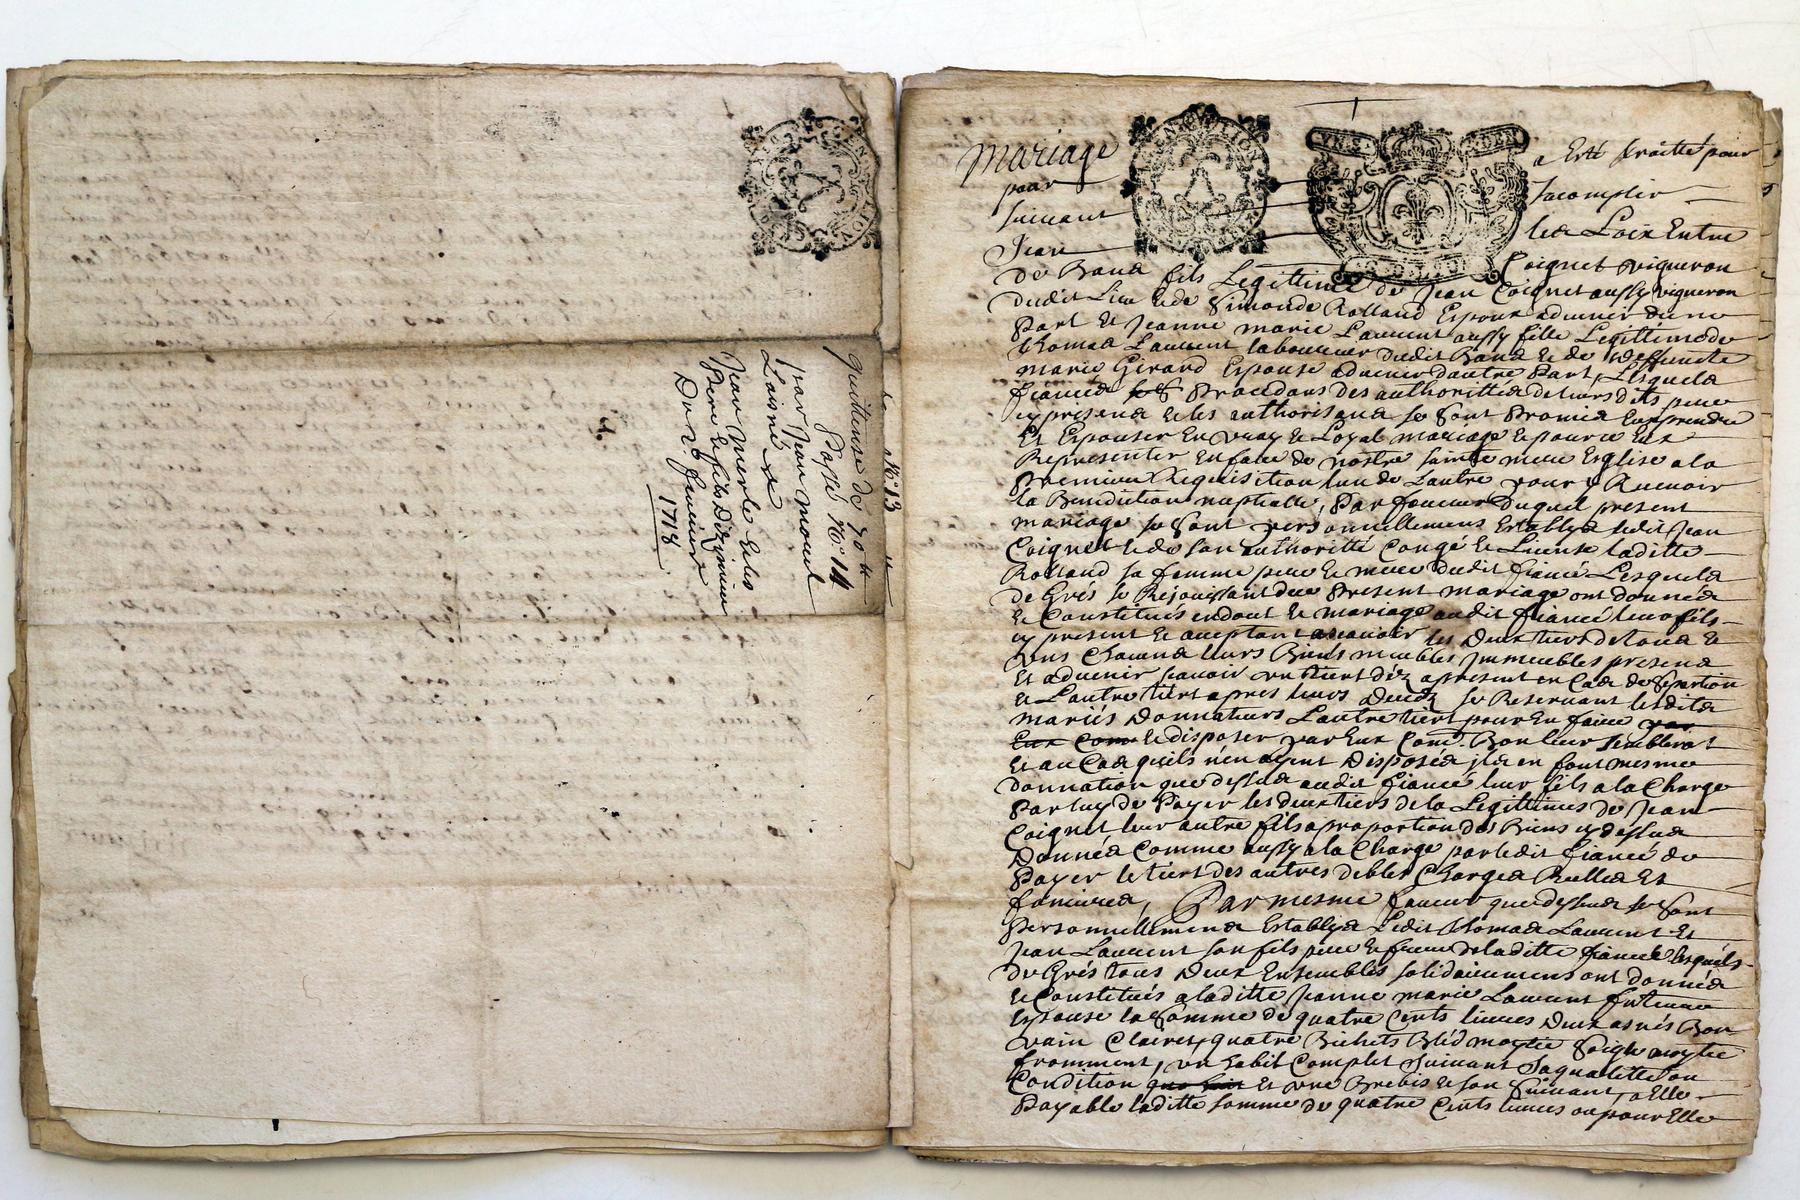 N.° 13
quittense de 70 lt
Passé N.° 14
par Jean mouel
Laisné
Jean merle et les
Pere et fils Dizimier
Du 2.e Janvier
1718
Mariage
a Esté traitté pour
pour
Sacomplir
suivant
les Loix Entre
Jean
Coignet vigneron
de Bana fils Legittime de Jean Coignet aussy vigneron
dudit Lieu et de Simonde Rolland Espoux advenir du ne
Part Et Jeanne marie Laurent aussy fille Legittime de
thomas Laurent laboureur dudit Bana et de deffuncte
marie Girard Espouse advenir dautre Part, Lesquels
fiancés Procedans des authorittés de leurs dits pere
cy presens et les authorisans se sont Promis Enprendre
Et Espouser En vray et Loyal mariage et pour ce Eux
Representer En face de nostre sainte mere Esglise a la
Premiere Requisition lun de Lautre pour y Recevoir
la Benediction nuptialle, Par faveur Duquel present
mariage se sont personnellement Establys ledit Jean
Coignet et de son authoritté Congé et License laditte
Rolland sa femme pere et mere dudit fiancé Lesquels
de Grés se Rejouissant due Present mariage ont donnés
et Constitués en dout et mariage audit fiancé leur fils
cy present et aceptant ascavoir les Deux tiers de tous et
uns Chacuns leurs Biens meubles Immeubles presens
Et advenir scavoir un tiert déz apresent en Cas de Separtion
et Lautre tiert apres leurs decéz se Reservant lesdits
mariés Donnateurs Lautre tiert pour En faire par
Eux Com et disposer par Eux Com̄e Bon leur semblera
Et au Cas quils nen ayent Disposés ils en font mesme
donnation que dessus audit fiancé leur fils a la Charge
Par luy de Payer les deux tiers de la Legittimes de Jean
Coignet leur autre fils a proportion des Biens cy dessus
Donnés Comme aussy a la Charge par ledit fiancé de
Payer le tiert des autres debtes Charges Reelles Et
foncieres, Par mesme faveur que dessus se sont
Personnellement Establys Ledit thomas Laurent Et
Jean Laurent son fils pere et frere de laditte fiancée lesquels
de Grés tous Deux Ensembles solidairement ont donnés
et Constitués a laditte Jeanne marie Laurent future
Espouse la Somme de quatre Cents livres Deux asnés Bon
vain Clairet, quatre Bichets Bléd moytie Soigle moytie
fromment, un habit Complet Suivant Saqualitté ou
Condition que soit Et une Brebis et son Suivant, a Elle
Payable laditte somme de quatre Cents livres ou pour Elle